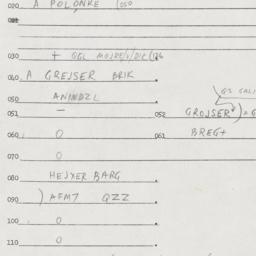 020 A POLONKE (050
030 + GGL
040 A GREJSER BRIK
050 ANINDZL
051 —
052 GROJSER
060 0
061 BREG+
070 0
080 HEJXER BARG
090 ) AFM7 QZZ
100 0
110 0